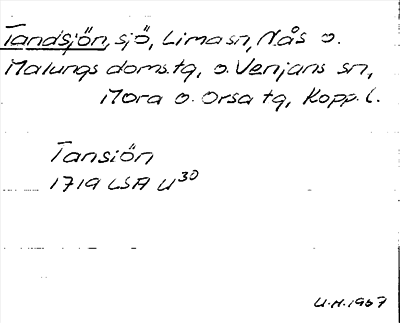 Tandsjön, sjö, Lima sn, Nås o.
Malungs doms.tg, o. Venjans sn,
Mora o. Orsa tg, Kopp. l.
Tansiön
1719 LSA U30
U.H. 1967